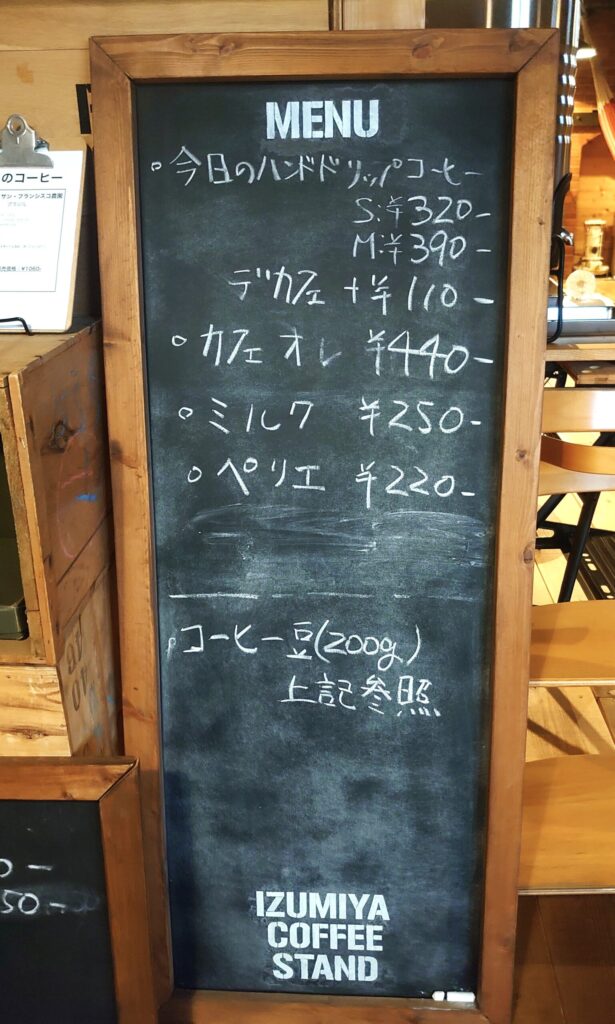 MENU
◦今日のハンドドリップコーヒー
S:¥320-
M:¥390-
デカフェ +¥110-
◦カフェオレ ¥440-
◦ミルク ¥250-
◦ペリエ ¥220-
◦コーヒー豆(200g)
上記参照
IZUMIYA
COFFEE
STAND
のコーヒー
サン・フランシスコ農園
¥1060-
0-
50-